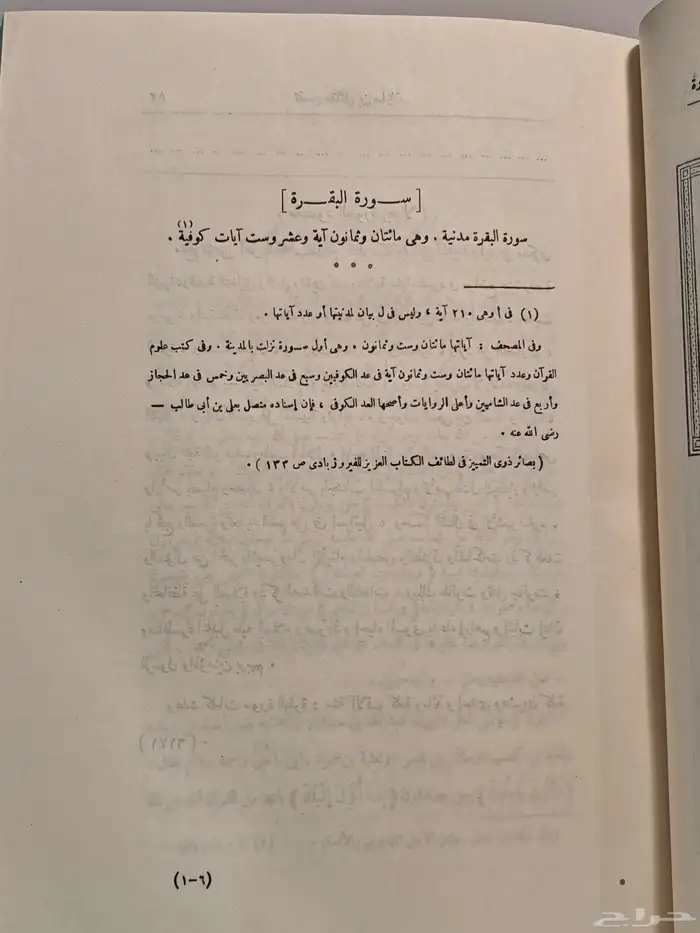 [ســورة البقــرة]
سورة البقرة مدنية . وهى مائتان وثمانون آية وعشر وست آيات كوفية (١) .
• • •
(١) فى أ وهى ٢١٠ آية ، وليس فى ل بيان لمدنيتها أو عدد آياتها .
وفى المصحف : آياتها مائتان وست وثمانون . وهى أول سورة نزلت بالمدينة . وفى كتب علوم
القرآن وعدد آياتها مائتان وست وثمانون آية فى عد الكوفيين وسبع فى عد البصريين وخمس فى عد الحجاز
وأربع فى عد الشاميين وأعلى الروايات وأصحها العد الكوفى ، فإن إسناده متصل بعلى بن أبى طالب —
رضى الله عنه .
( بصائر ذوى التمييز فى لطائف الكتاب العزيز للفيروزبادى ص ١٣٣ ) .
(١-٦)
حراج